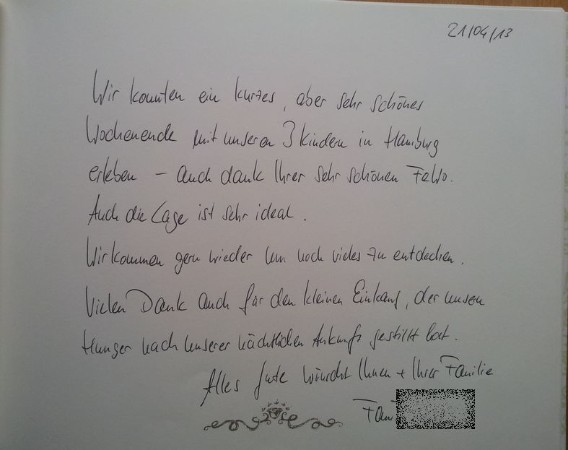 21/04/13
Wir konnten ein kurzes, aber sehr schönes
Wochenende mit unseren 3 Kindern in Hamburg
erleben – auch dank Ihrer sehr schönen FeWo.
Auch die Lage ist sehr ideal.
Wir kommen gern wieder um noch vieles zu entdecken.
Vielen Dank auch für den kleinen Einkauf, der unseren
Hunger nach unserer nächtlichen Ankunft gestillt hat.
Alles Gute wünscht Ihnen + Ihrer Familie
Fam